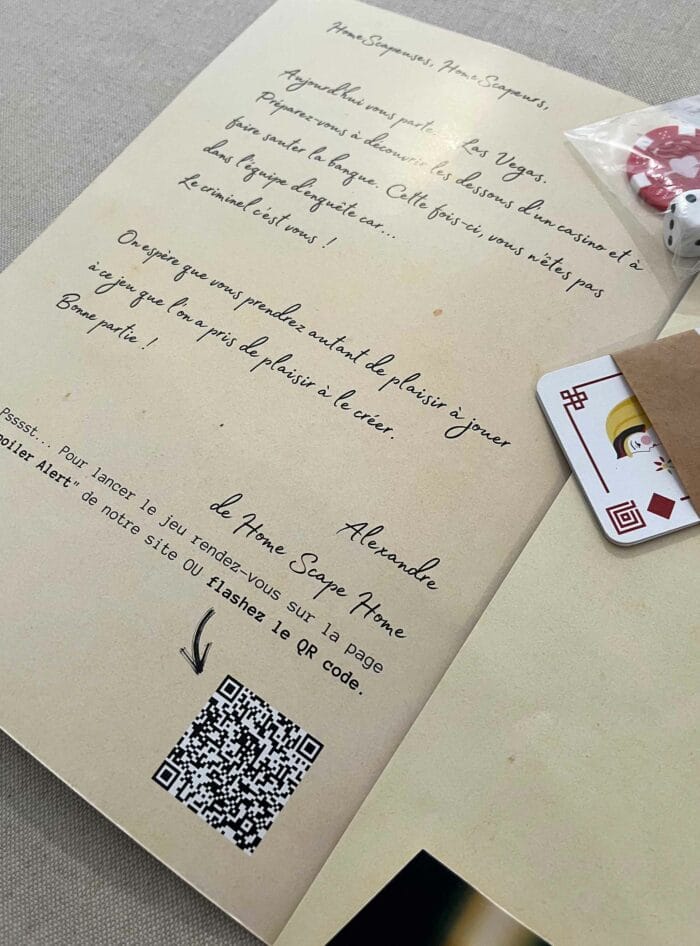 HomeScapeuses, HomeScapeurs,
Aujourd'hui vous parte... Las Vegas.
Préparez-vous à découvrir les dessons d'un casino et à
faire sauter la banque. Cette fois-ci, vous n'êtes pas
dans l'équipe d'enquête car...
Le criminel c'est vous !
On espère que vous prendrez autant de plaisir à jouer
à ce jeu que l'on a pris de plaisir à le créer.
Bonne partie !
Alexandre
de Home Scape Home
Psssst... Pour lancer le jeu rendez-vous sur la page
poiler Alert" de notre site OU flashez le QR code.